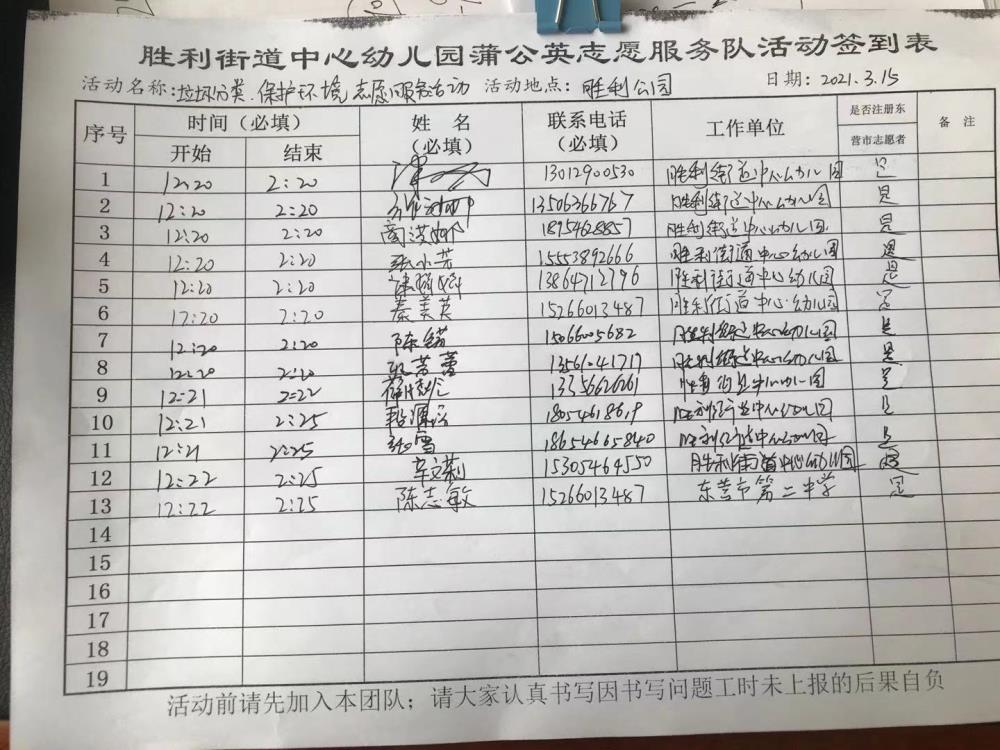 胜利街道中心幼儿园蒲公英志愿服务队活动签到表
活动名称:垃圾分类.保护环境志愿服务活动 活动地点:胜利公园 日期:2021.3.15
序号 时间（必填） 姓名（必填） 联系电话（必填） 工作单位 是否注册东营市志愿者 备注
开始 结束
1 12:20 2:20 13012900530 胜利街道中心幼儿园 是
2 12:20 2:20 13506366767 胜利街道中心幼儿园 是
3 12:20 2:20 18954628857 胜利街道中心幼儿园 是
4 12:20 2:20 张小芳 15553892666 胜利街道中心幼儿园 是
5 12:20 2:20 13864712796 胜利街道中心幼儿园 是
6 12:20 2:20 秦美英 15266013487 胜利街道中心幼儿园 是
7 12:20 2:20 15066005682 胜利街道中心幼儿园 是
8 12:20 2:20 13561041717 胜利街道中心幼儿园 是
9 12:21 2:22 幼儿园 是
10 12:21 2:25 18054618619 胜利街道中心幼儿园 是
11 12:21 2:25 张雪 18654665840 胜利街道中心幼儿园 是
12 12:22 2:25 辛文莉 15305464550 胜利街道中心幼儿园 是
13 12:22 2:25 陈志敏 15266013487 东营市第二中学 是
14
15
16
17
18
19
活动前请先加入本团队；请大家认真书写因书写问题工时未上报的后果自负